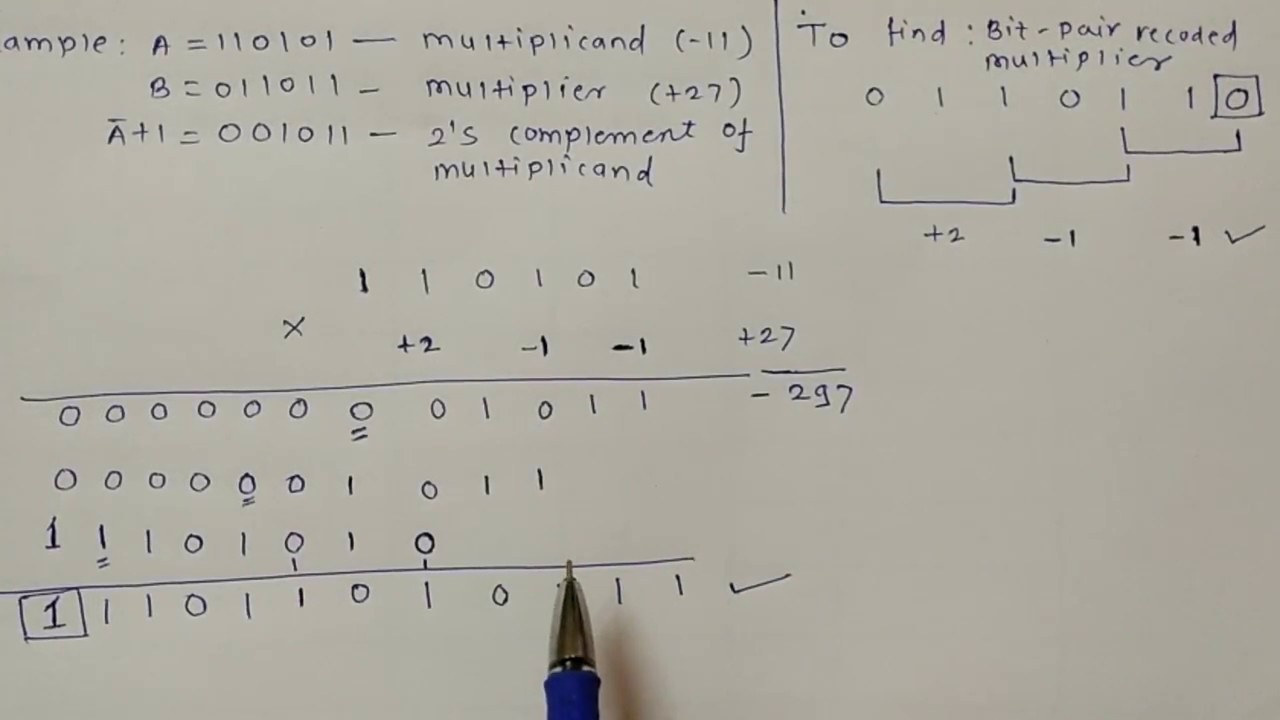 ample: A = 110101 — multiplicand (-11)
B = 011011 - multiplier (+27)
Ā+1 = 001011 — 2's complement of
multiplicand
To find: Bit-pair recoded
multiplier
0 1 1 0 1 1 0
+2 -1 -1 ✓
1 1 0 1 0 1 -11
× +2 -1 -1 +27
0 0 0 0 0 0 0 0 1 0 1 1 - 297
0 0 0 0 0 0 1 0 1 1
1 1 1 0 1 0 1 0
1 1 1 0 1 1 0 1 0 1 1 ✓